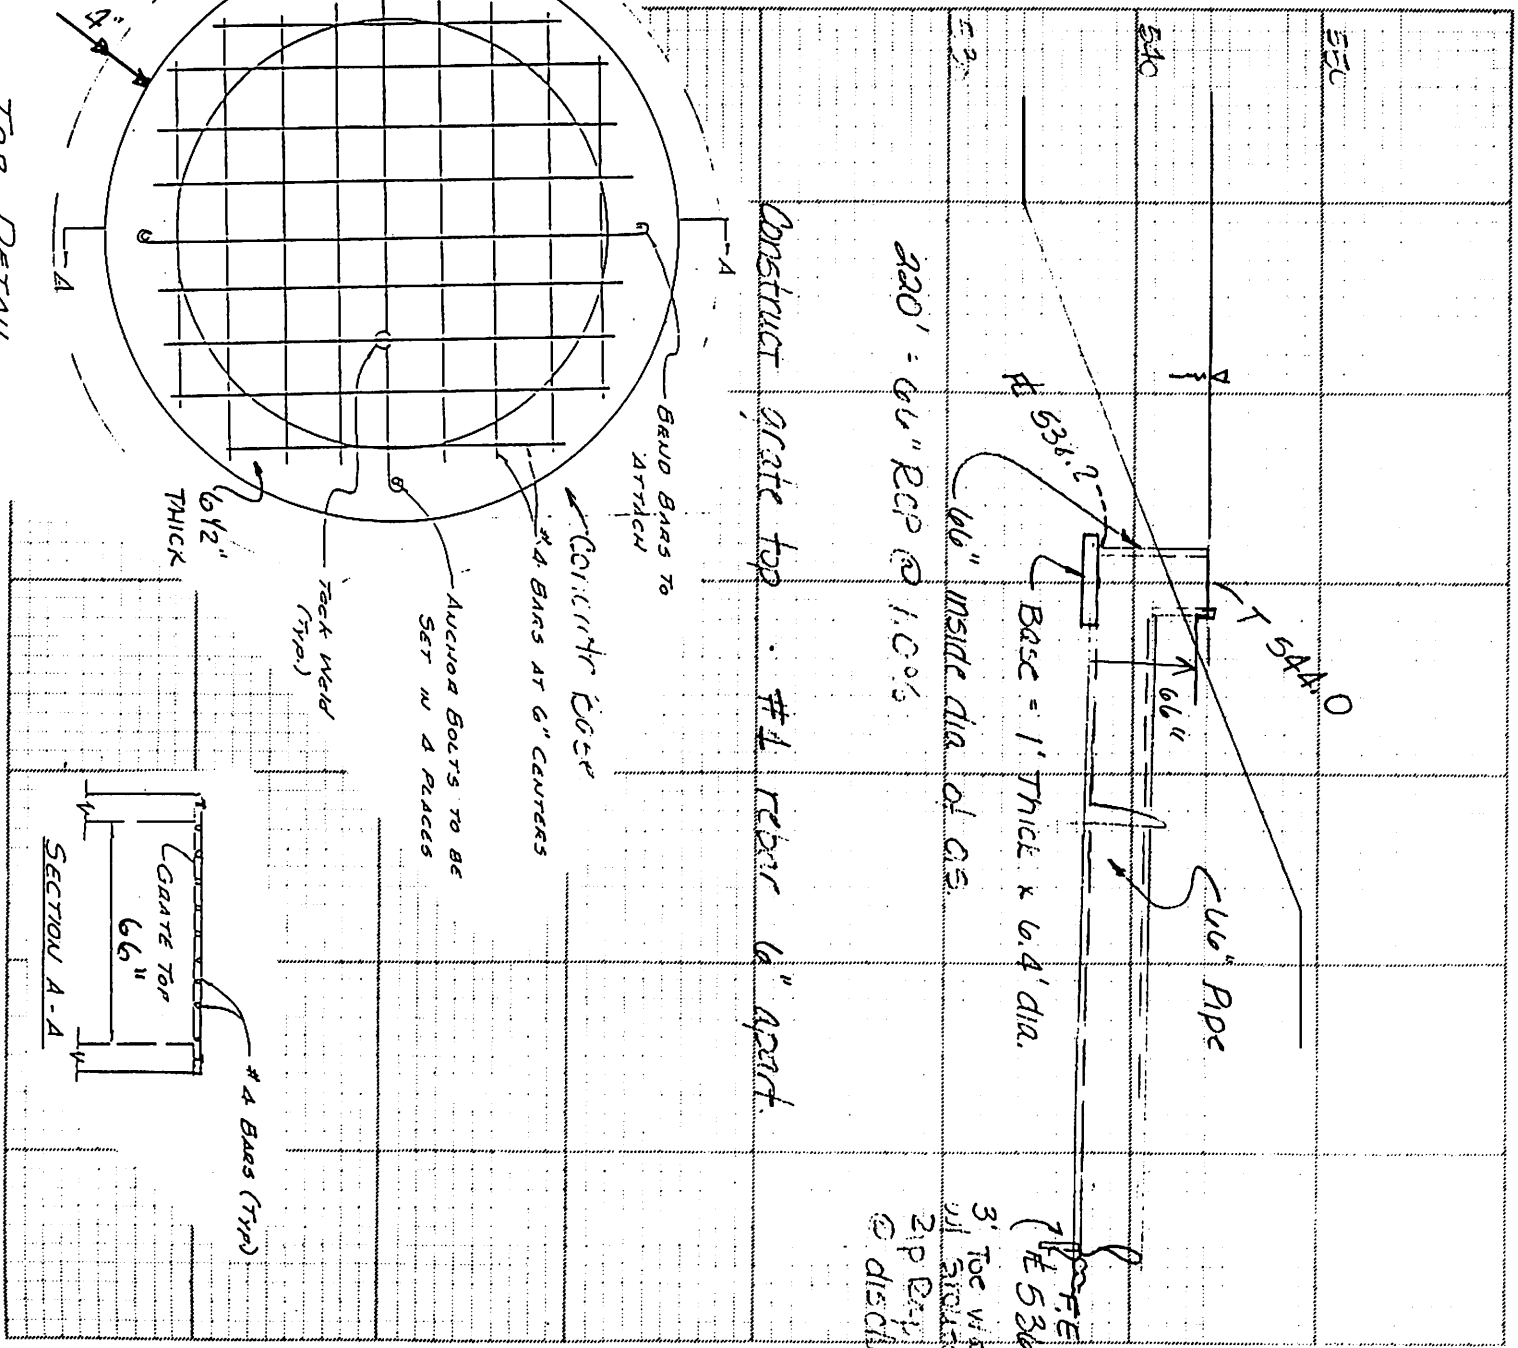 550
540
T 544.0
66"
66" Pipe
Base = 1' Thick x 6.4' dia.
66" inside dia of CB.
220' - 66" RCP @ 1.0%
Construct grate top. #4 rebar 6" apart.
F.E
3' Toe
@
4"
A
A
BEND BARS TO
ATTACH
#4 BARS AT 6" CENTERS
ANCHOR BOLTS TO BE
SET IN 4 PLACES
TACK WELD
(TYP.)
6 1/2"
THICK
TOP DETAIL
GRATE TOP
66"
#4 BARS (TYP)
SECTION A-A